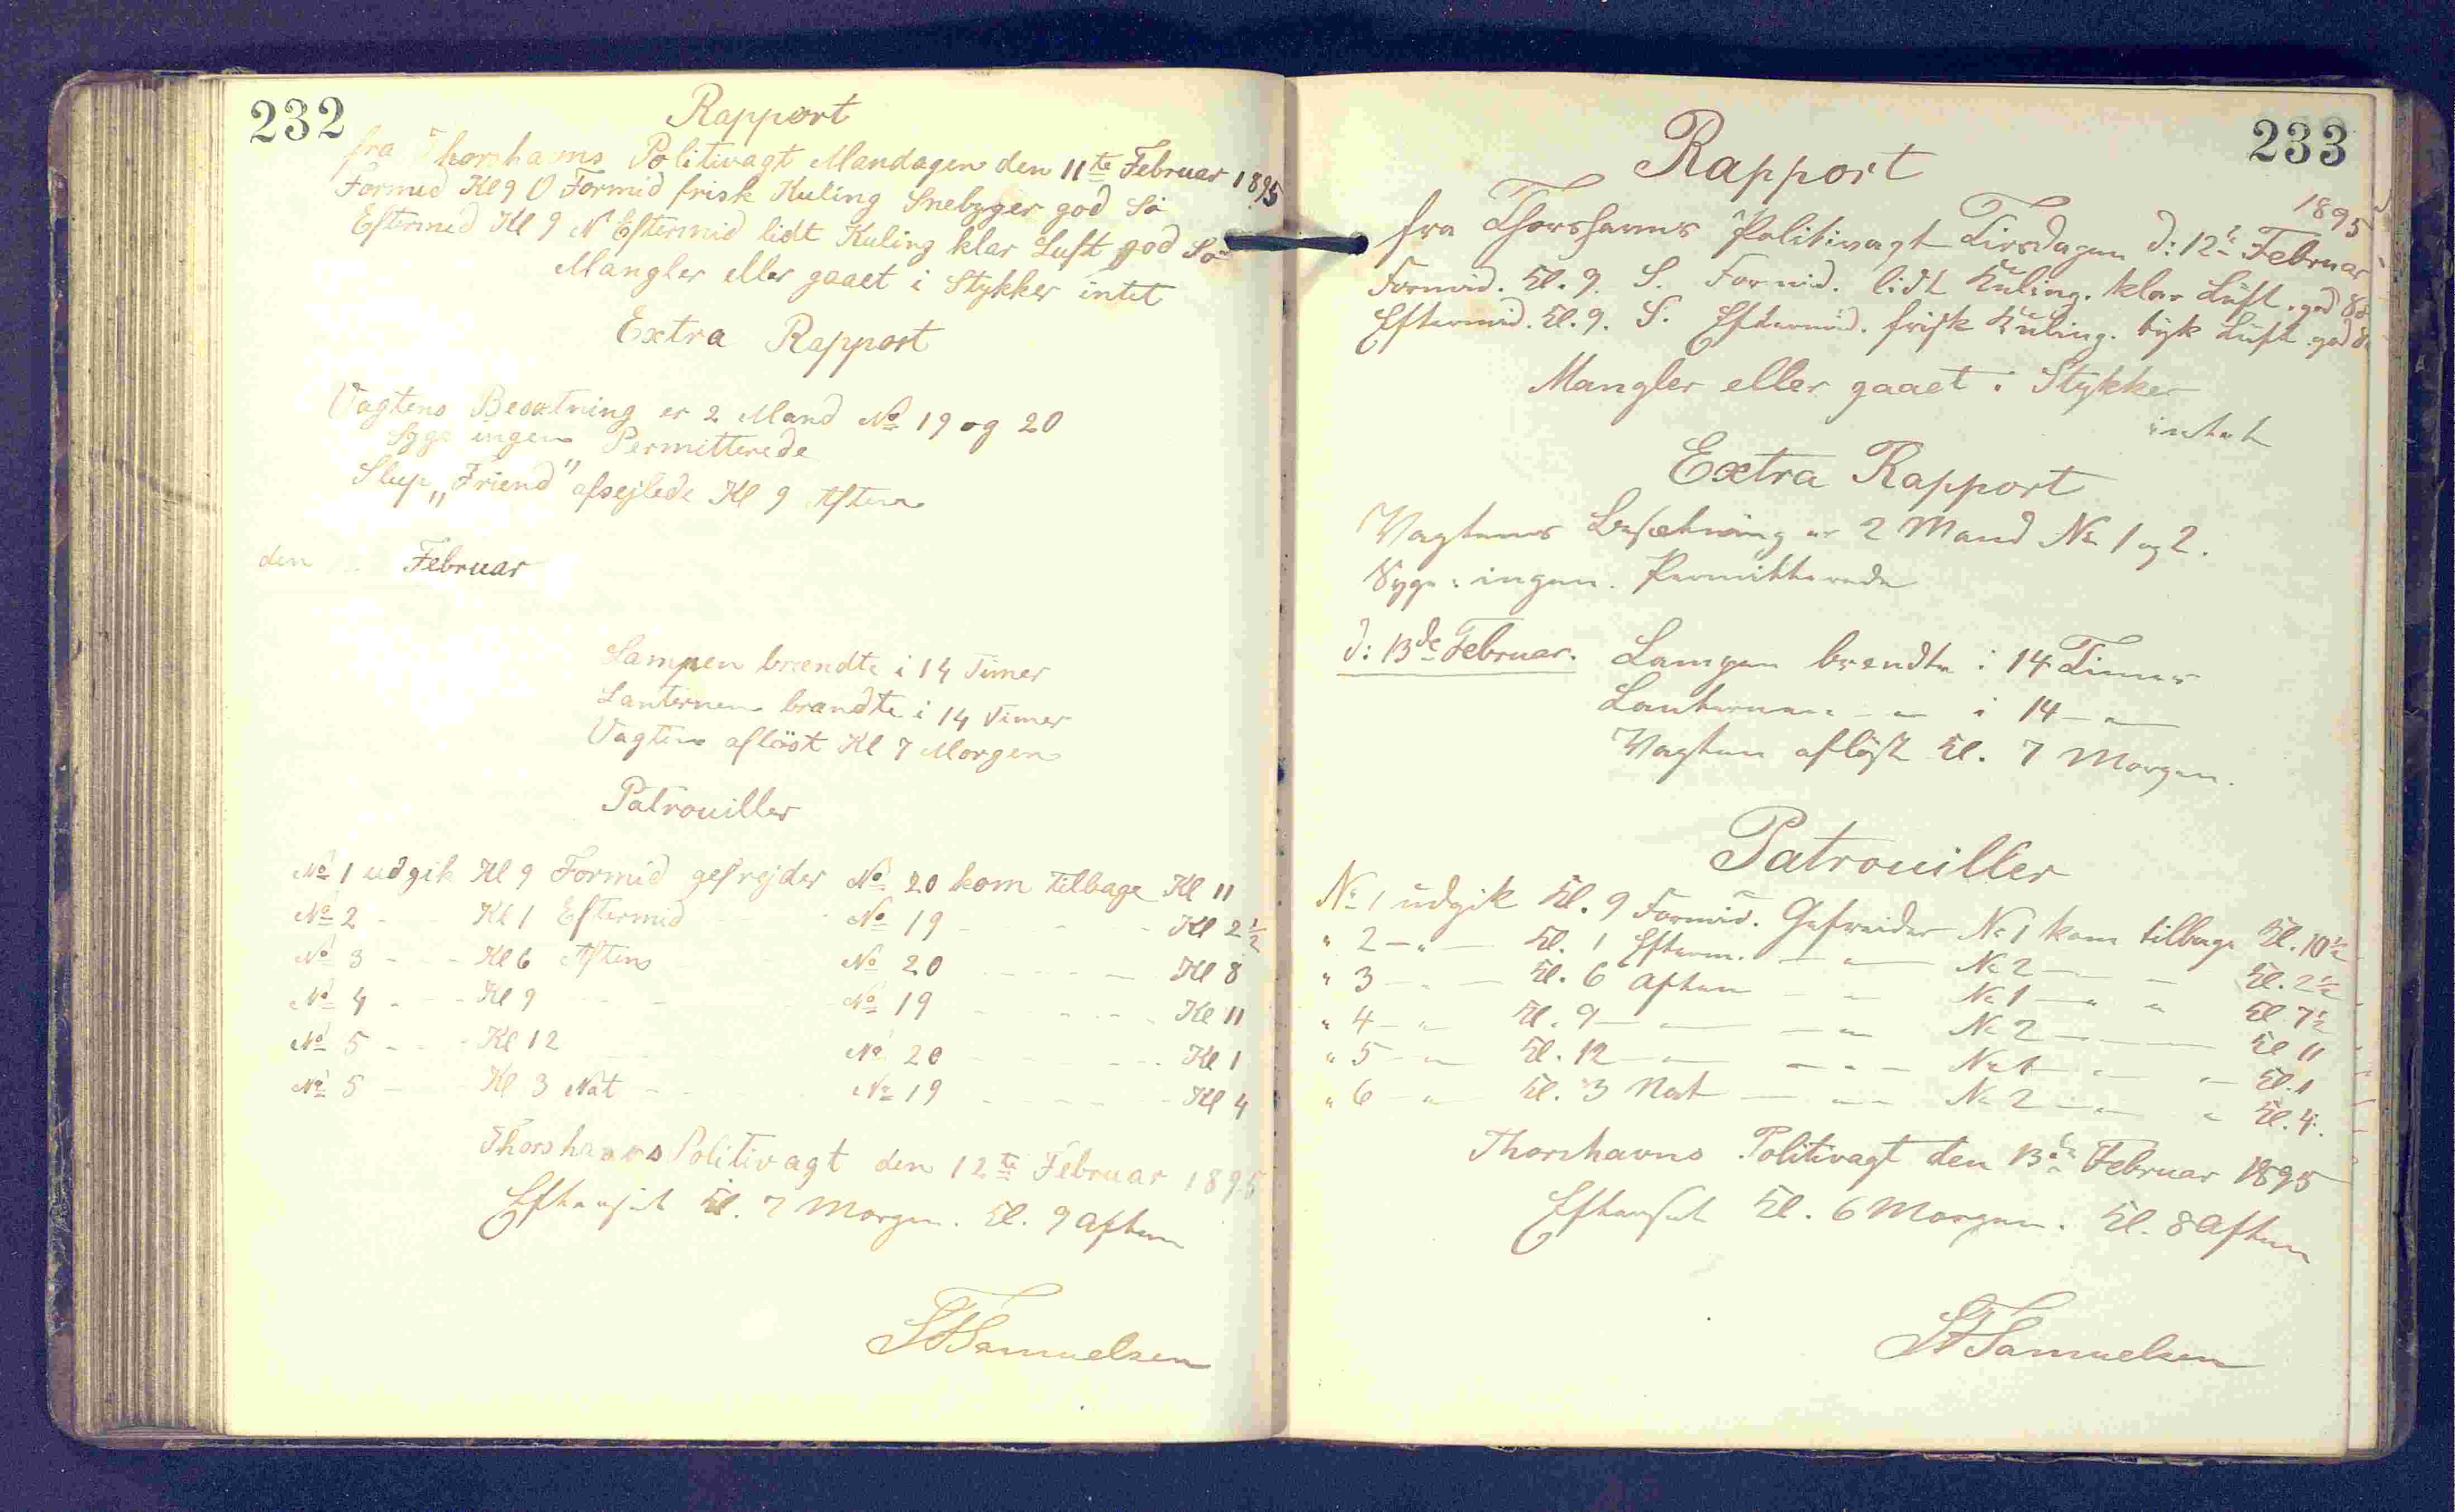 232
Rapport
fra Thorshavns Politivagt Mandagen den 11te Februar 1895
Formid Kl 9 O Formid frisk Kuling Snebyger god Sö
Eftermid Kl 9 N Eftermid lidt Kuling klar Luft god Sö
Mangler eller gaaet i Stykker intet
Extra Rapport
Vagtens Besætning er 2 Mand No 19 og 20
Syge ingen Permitterede
Slup „Friend" afsejlede Kl 9 Aften
den Februar
Lampen brændte i 14 Timer
Lanternen brændte i 14 Timer
Vagten aflöst Kl 7 Morgen
Patrouiller
No 1 udgik Kl 9 Formid gefrejder No 20 kom tilbage Kl 11
No 2 - - - Kl 1 Eftermid - - No 19 - - - Kl 2½
No 3 - - - Kl 6 Aften - - No 20 - - - Kl 8
No 4 - - - Kl 9 - - - No 19 - - - Kl 11
No 5 - - - Kl 12 - - - No 20 - - - Kl 1
No 5 - - - Kl 3 Nat - - No 19 - - - Kl 4
Thorshavns Politivagt den 12te Februar 1895
Efterset Kl. 7 Morgen. Kl. 9 Aften
Samuelsen
233
Rapport
1895
fra Thorshavns Politivagt Tirsdagen d: 12te Februar
Formid. Kl. 9. S. Formid. lidt Kuling. klar Luft. god Sö
Eftermid. Kl. 9. S. Eftermid. frisk Kuling. tyk Luft god Sö
Mangler eller gaaet i Stykker
intet
Extra Rapport
Vagtens Besætning er 2 Mand No 1 og 2.
Syge: ingen. Permitterede
d: 13de Februar. Lampen brændte i 14 Timer
Lanternen - " - i 14 - " -
Vagten aflöst Kl. 7 Morgen.
Patrouiller
No 1 udgik Kl. 9 Formid. Gefreider No 1 kom tilbage Kl. 10½
" 2 - " - Kl. 1 Efterm. - " - No 2 - " - Kl. 2½
" 3 - " - Kl. 6 Aften - " - No 1 - " - Kl. 7½
" 4 - " - Kl. 9 - " - - " - No 2 - " - Kl 11
" 5 - " - Kl. 12 - " - - " - No 1 - " - Kl. 1
" 6 - " - Kl. 3 Nat - " - No 2 - " - Kl. 4.
Thorshavns Politivagt den 13de Februar 1895
Efterset Kl. 6 Morgen. Kl. 8 Aften
Samuelsen